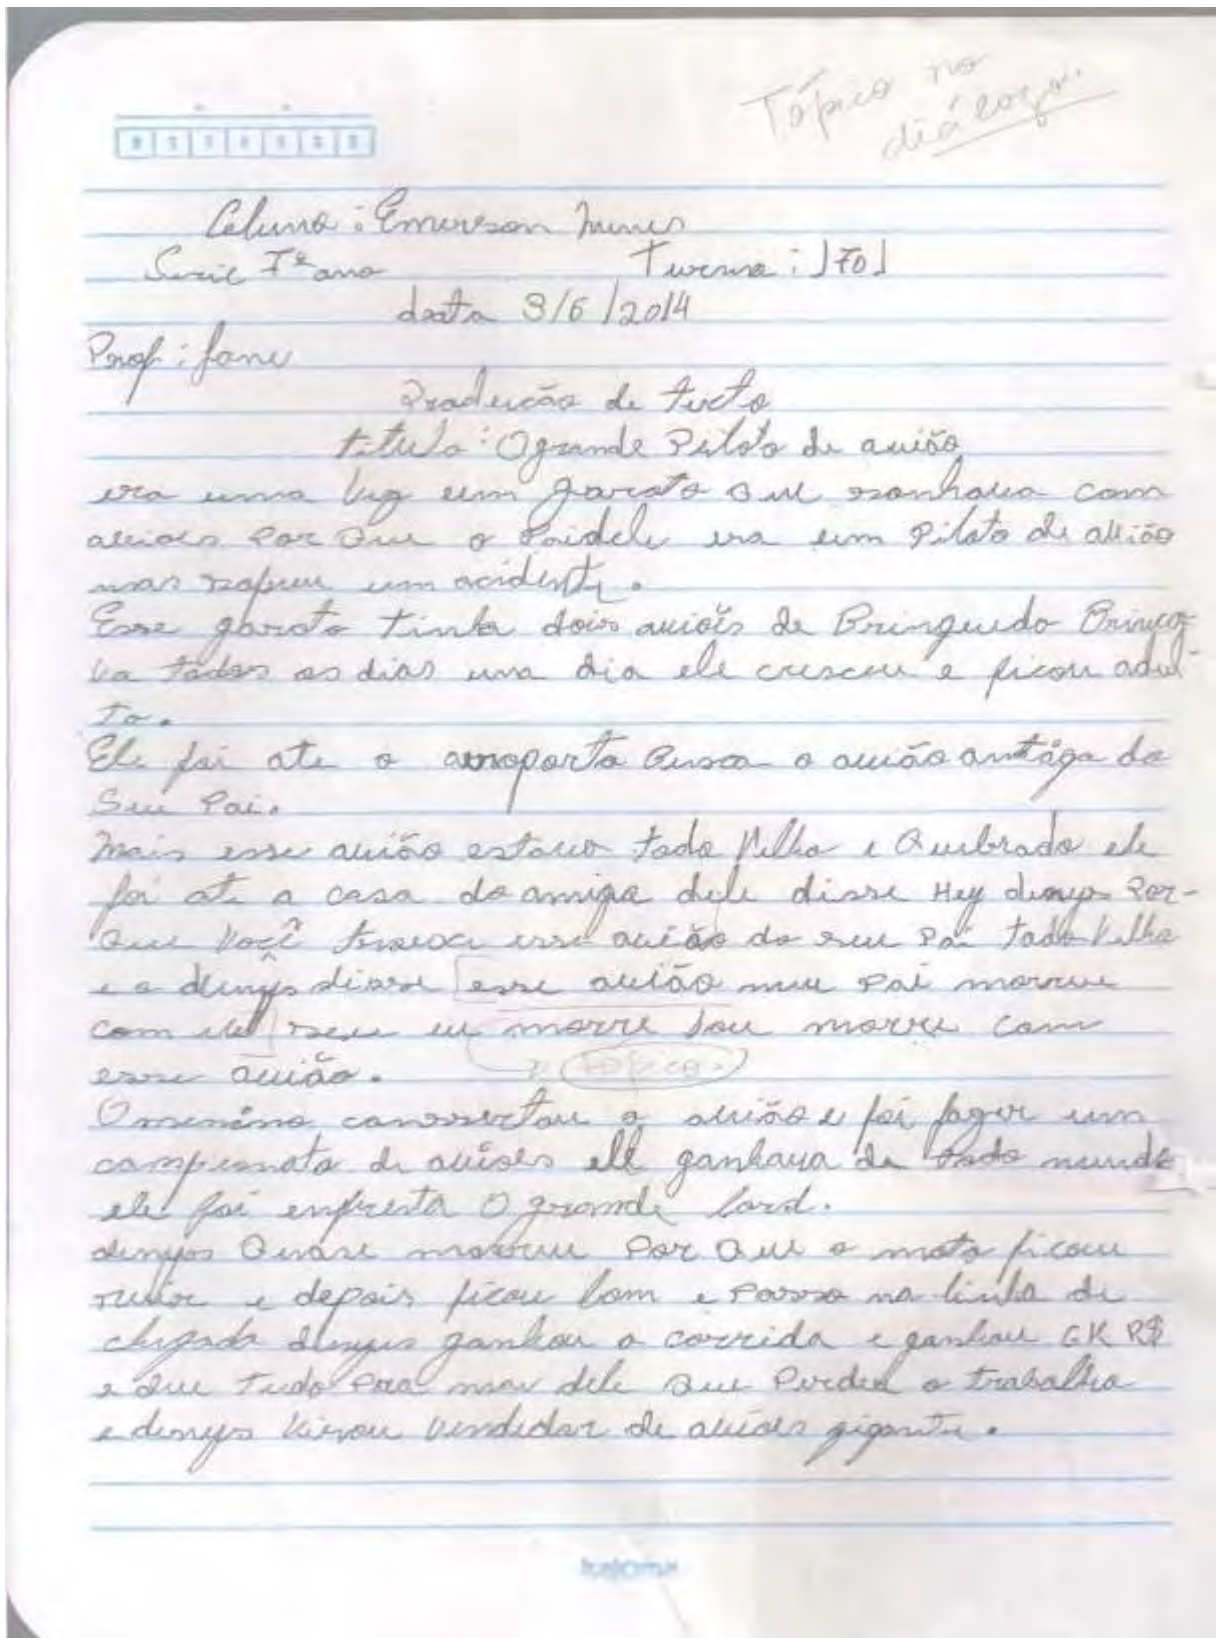 Tópico no
diálogo.
Aluno : Emerson Nunes
Serie 7º ano Turma : 1701
data 3/6/2014
Prof : Jane
Produção de texto
titulo : O grande Piloto de avião
era uma vez um garoto que sonhava com
aviões Por que o Paidele era um Piloto de avião
mas sofreu um acidente.
Esse garoto tinha dois aviões de Bringuedo Brinca-
va todos os dias uma dia ele cresceu e ficou adul-
to.
Ele foi ate o aeroporto Busca o avião antigo do
Seu Pai.
Mais esse avião estava todo Velho e Quebrado ele
foi ate a casa do amigo dele disse Hey denys Por-
que Você esse avião do seu Pai todo Velho
e o denys disse esse avião meu Pai morreu
com ele seu eu morre vou morre com
esse avião.
tópico.
O menino conssertou o avião e foi fazer um
campeonato de aviões ele ganhava de todo mundo
ele foi enfrenta O grande lord.
denyos Quase morreu Por que o moto ficou
ruin e depois ficou bom e Passo na linha de
chegada denyos ganhou a corrida e ganhou 6K R$
e deu tudo Pra mae dele que Perdeu o trabalho
e denyos Virou Vendedor de aviões gigante.